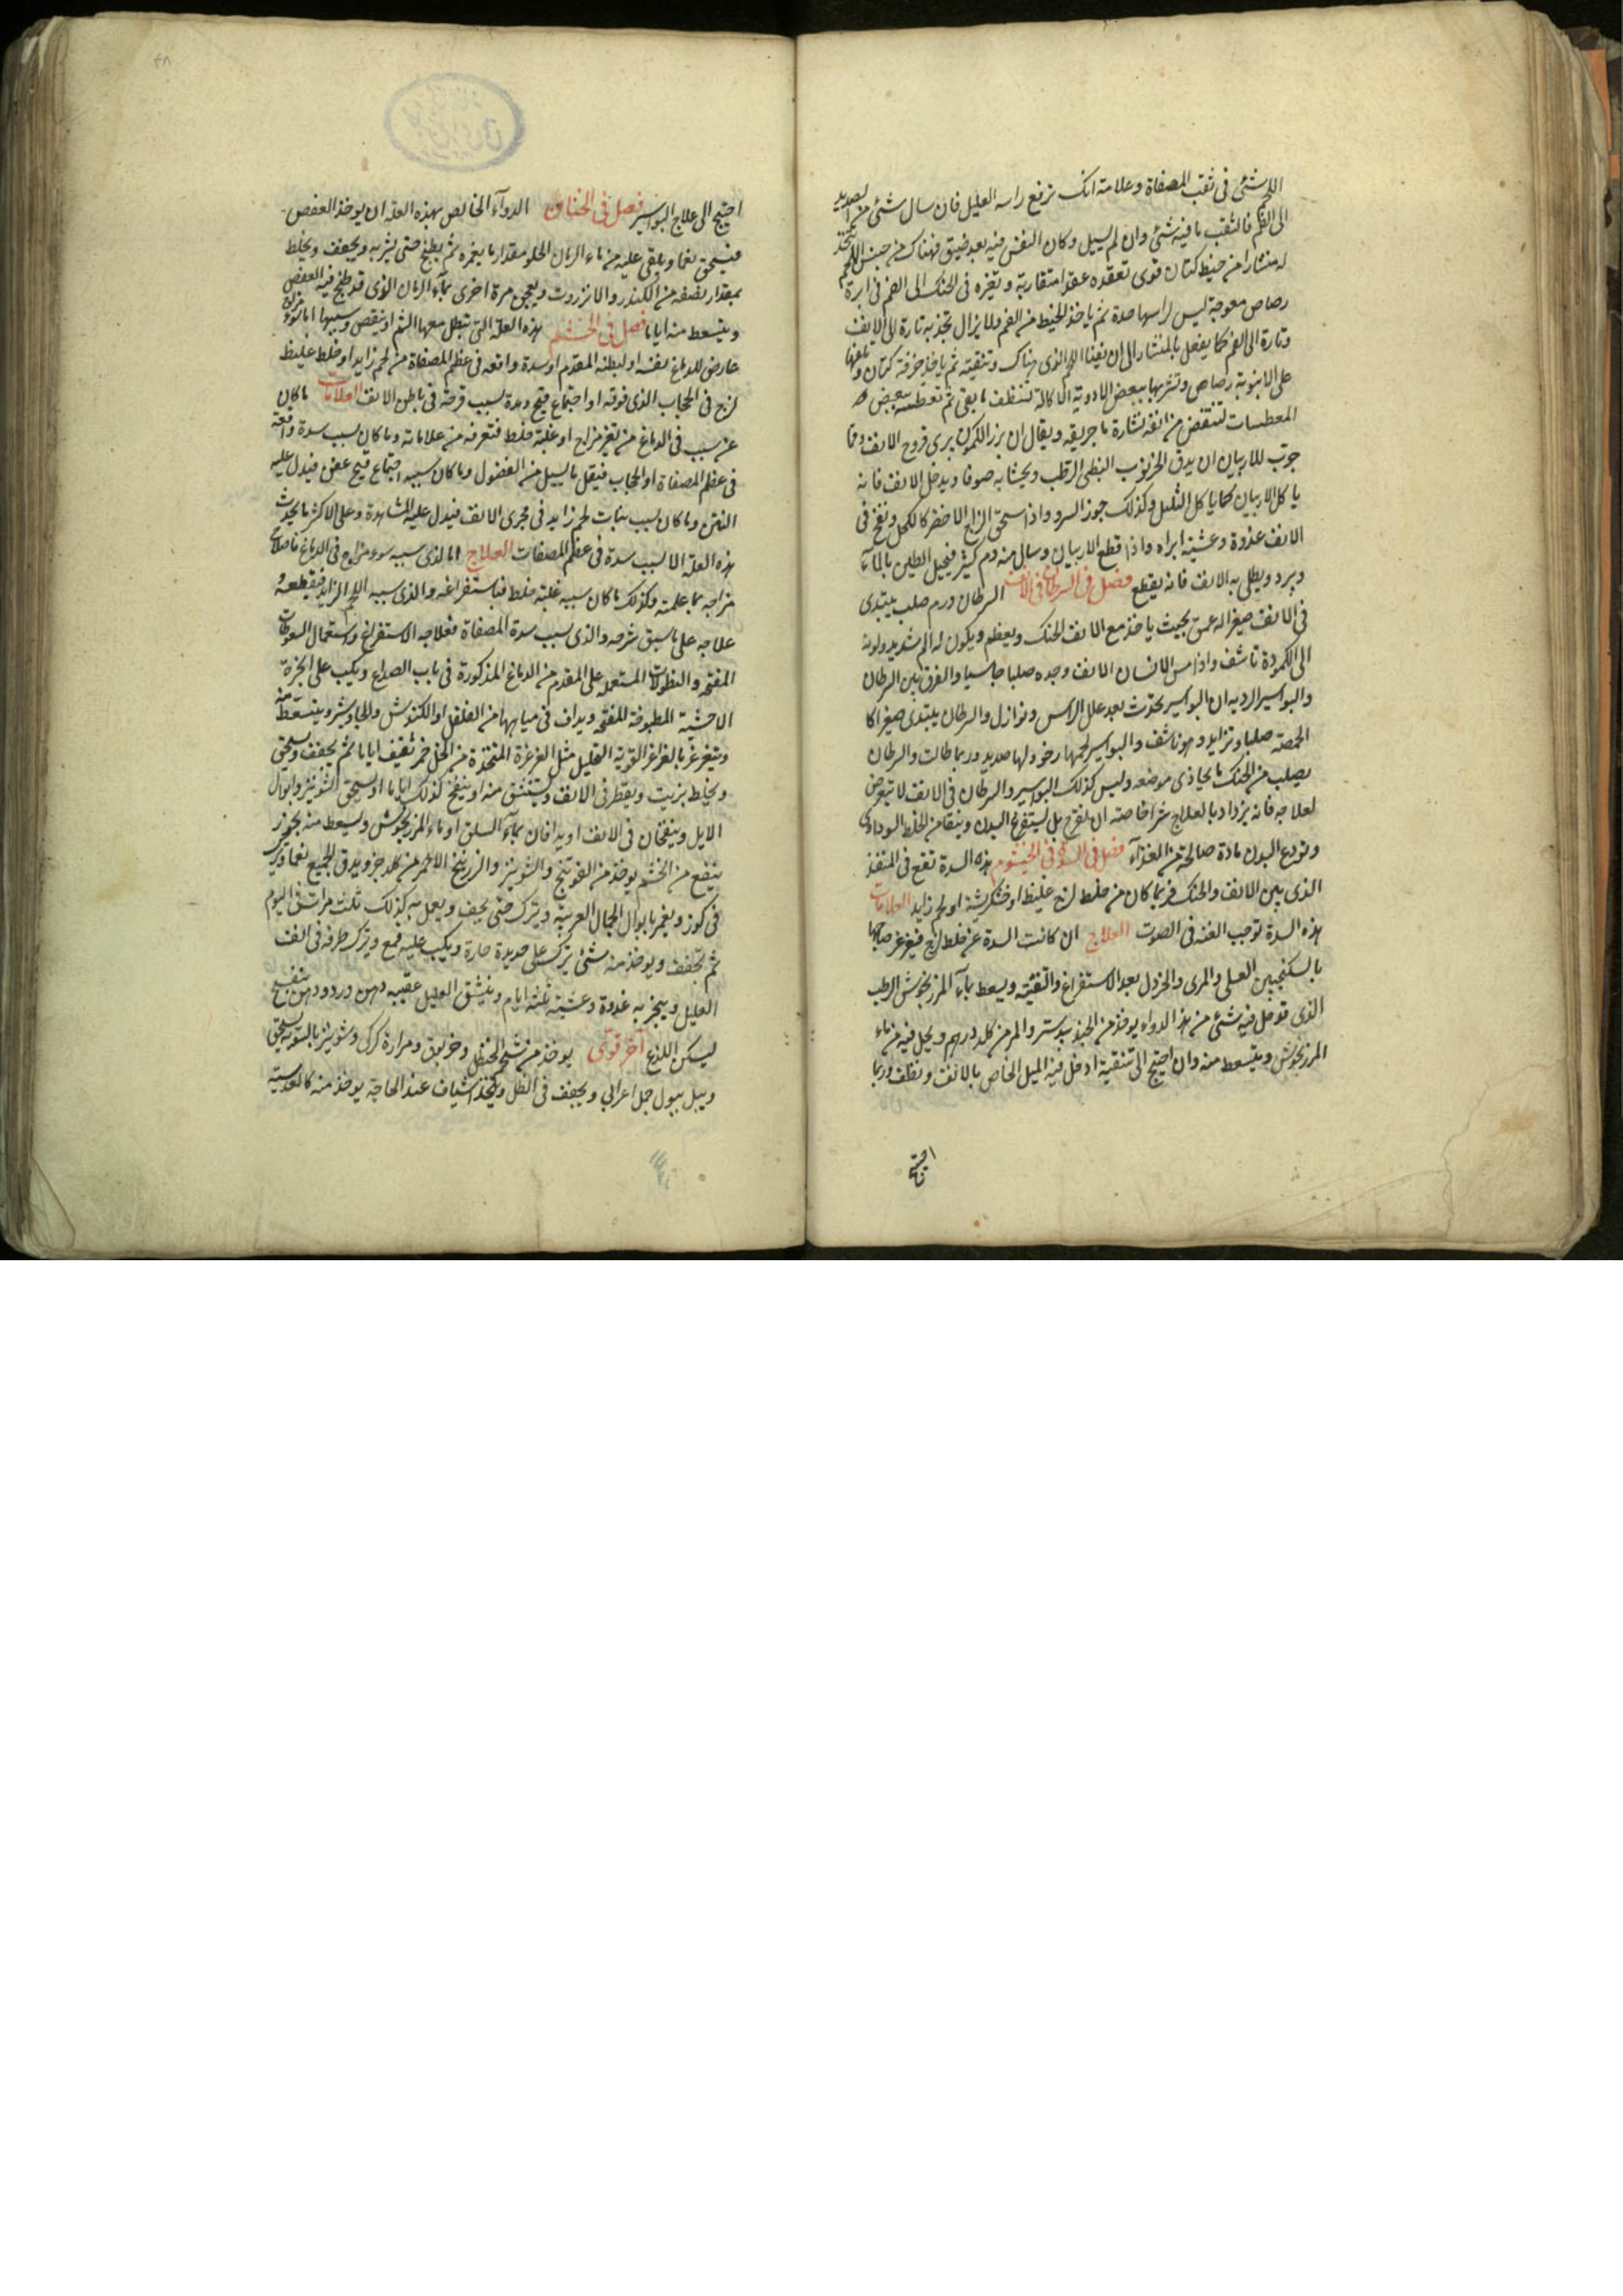 اللحم شئ في ثقب المصفاة وعلامته انك ترفع راسه العليل فان سال شئ من الصديد
الى الفم فالثقب ما فيه شئ وان لم يسيل وكان النفس فيه بعد ضيق فهناك من جنس اللحم يتخذ
له منشارا من خيط كتان قوى تعقده عقدا متقاربة وتغزه في الحنك الى الفم في ابرة
رصاص معوجة ليس راسها حدة ثم ياخذ الخيط من الفم ولا يزال تجذبه تارة الى الانف
وتارة الى الفم كما يفعل بالمنشار الى ان يفنا اللحم الذى هناك وتنقيته ثم ياخذ خرقة كتان وتلفها
على الانبوبة رصاص وتشربها ببعض الادوية الاكالة لتنظف ما بقى ثم تعطسه ببعض
المعطسات لتنتفض من انفه نشارة ما جريقه ويقال ان بزر الكمون يبرى قروح الانف ومما
جرب للاربيان ان يدق الخرنوب النبطى الرطب ويحشا به صوفا ويدخل الانف فانه
ياكل الاربيان كما ياكل الثليل وكذلك جوز السرو واذا سحق الزاج الاخضر كالكحل ونفخ في
الانف غدوة وعشية ابراه واذا قطع الاربيان وسال منه دم كثير فيحل الطين بالمآء
ويرد ويطلى به الانف فانه يقطع فصل في السرطان في الانف السرطان ورم صلب يبتدى
في الانف صغيرا له عمق بحيث ياخذ مع الانف الحنك ويعظم ويكون له الم شديد ولونه
الى الكمودة ناشف واذا مس الانسان الانف وجده صلبا جاسيا والفرق بين السرطان
والبواسير الرديه ان البواسير يحدث بعد علل الراس ونوازل والسرطان يبتدى صغيرا كا
لحمصة صلبا وتزايد وهو ناشف والبواسير لحمها رخو ولها صديد وربما طالت والسرطان
يصلب من الحنك ما يحاذى موضعه وليس كذلك البواسير والسرطان في الانف لا تتعرض
لعلاجه فانه يزداد بالعلاج شرا خاصة ان تقرح بل يستفرغ البدن وينقا من الخلط السوداوى
وتودع البدن مادة صالحة من الغذآء فصل في السدة في الخيشوم هذه السدة تقع في المنفذ
الذى بين الانف والحنك فربما كان من خلط لزج غليظ او خشكريشة او لحم زايد العلامات
هذه السدة توجب الغنه في الصوت العلاج ان كانت السدة عن خلط لزج فيغرغر صاحبها
بالسكنجبين العسلى والمرى والخردل بعد الاستفراغ والتنقيه ويسعط بمآء المرزنجوش الرطب
الذى قد حل فيه شئ من هذا الدواء يوخذ من الجندبيدستر والمر من كلد درهم ويحل فيه من ماء
المرزنجوش ويتسعط منه وان احتيج الى تنقية ادخل فيه الميل الخاص بالانف ونظف وربما
احتيج
احتيج الى علاج البواسير فصل في الخناق الدوآء الخالص بهذه العلة ان يوخذ العفص
فيسحق نعما ويلقى عليه من ماء الرمان الحلو مقدار ما يغمره ثم يطبخ حتى يشربه ويجفف ويخلط
بمقدار نصفه من الكندر والانزروت ويعجن مرة اخرى بمآء الرمان الذى قد طبخ فيه العفص
ويتسعط منه اياما فصل في الخشم هذه العلة التى تبطل معها الشم او ينقص وسببها اما سوء مزاج
عارض للدماغ نفسه او لبطنه المقدم او سدة واقعه في عظم المصفاة من لحم زايد او خلط غليظ
لزج في الحجاب الذى فوقه او اجتماع قيح ومدة بسبب قرحة في باطن الانف العلامات ما كان
عن سبب في الدماغ من تغير مزاج او غلبة خلط فتعرفه من علاماته وما كان بسبب سدة واقعة
في عظم المصفاة او الحجاب فيقل ما يسيل من الفضول وما كان سببه اجتماع قيح عفن فيدل عليه
النتن وما كان بسبب نبات لحم زايد في مجرى الانف فيدل عليه المشاهدة وعلى الاكثر ما يحدث
هذه العلة الا بسبب سدة في عظم المصفات العلاج اما لذى سببه سوء مزاج في الدماغ فاصلاح
مزاجه بما علمته وكذلك ما كان سببه غلبة خلط فباستفراغه والذى سببه اللحم الزايد فيقطعه و
علاجه على ما سبق شرحه والذى بسبب سدة المصفاة فعلاجه الاستفراغ واستعمال السعوطات
المفتحه والنطولات المستعمله على المقدم من الدماغ المذكورة في باب الصداع ويكب على ابخرة
الاحشية المطبوخة المفتحه ويداف في مياهها من الفلفل او الكندش والجاوشير ويتسعط منه
ويتغرغر بالغراغر القوية التحليل مثل الغرغرة المتخذة من الخل خمر ثقيف اياما ثم يجفف ويسحق
ويخلط بزيت ويقطر في الانف ويستنشق منه او ينفخ كذلك اياما او يسحق الشونيز وابوال
الابل وينفخان في الانف او يدافان بمآء السلق او ماء المرزنجوش ويسعط منه بخور
ينفع من الخشم يوخذ من الفوتنج والشونيز والزرنيخ الاحمر من كلد جزو يدق الجميع نعما ويترك
في كوز ويغمر بابوال الجمال العربية ويترك حتى يجف ويعمل به كذلك ثلث مرات في اليوم
ثم تجفف ويوخذ منه شئ يترك على حديدة حارة ويكب عليه قمع ويترك طرفه في انف
العليل ويبخر به غدوة وعشية ثلثة ايام وينشق العليل عقيبه دهن ورد ودهن بنفسج
ليسكن اللذع آخر قوى يوخذ من شحم الحنظل وخربق ومرارة كركى وشونيز بالسويه يسحق
ويبل ببول جمل اعرابي ويجفف في الظل ويتخذ اشياف عند الحاجة يوخذ منه كالعدسة